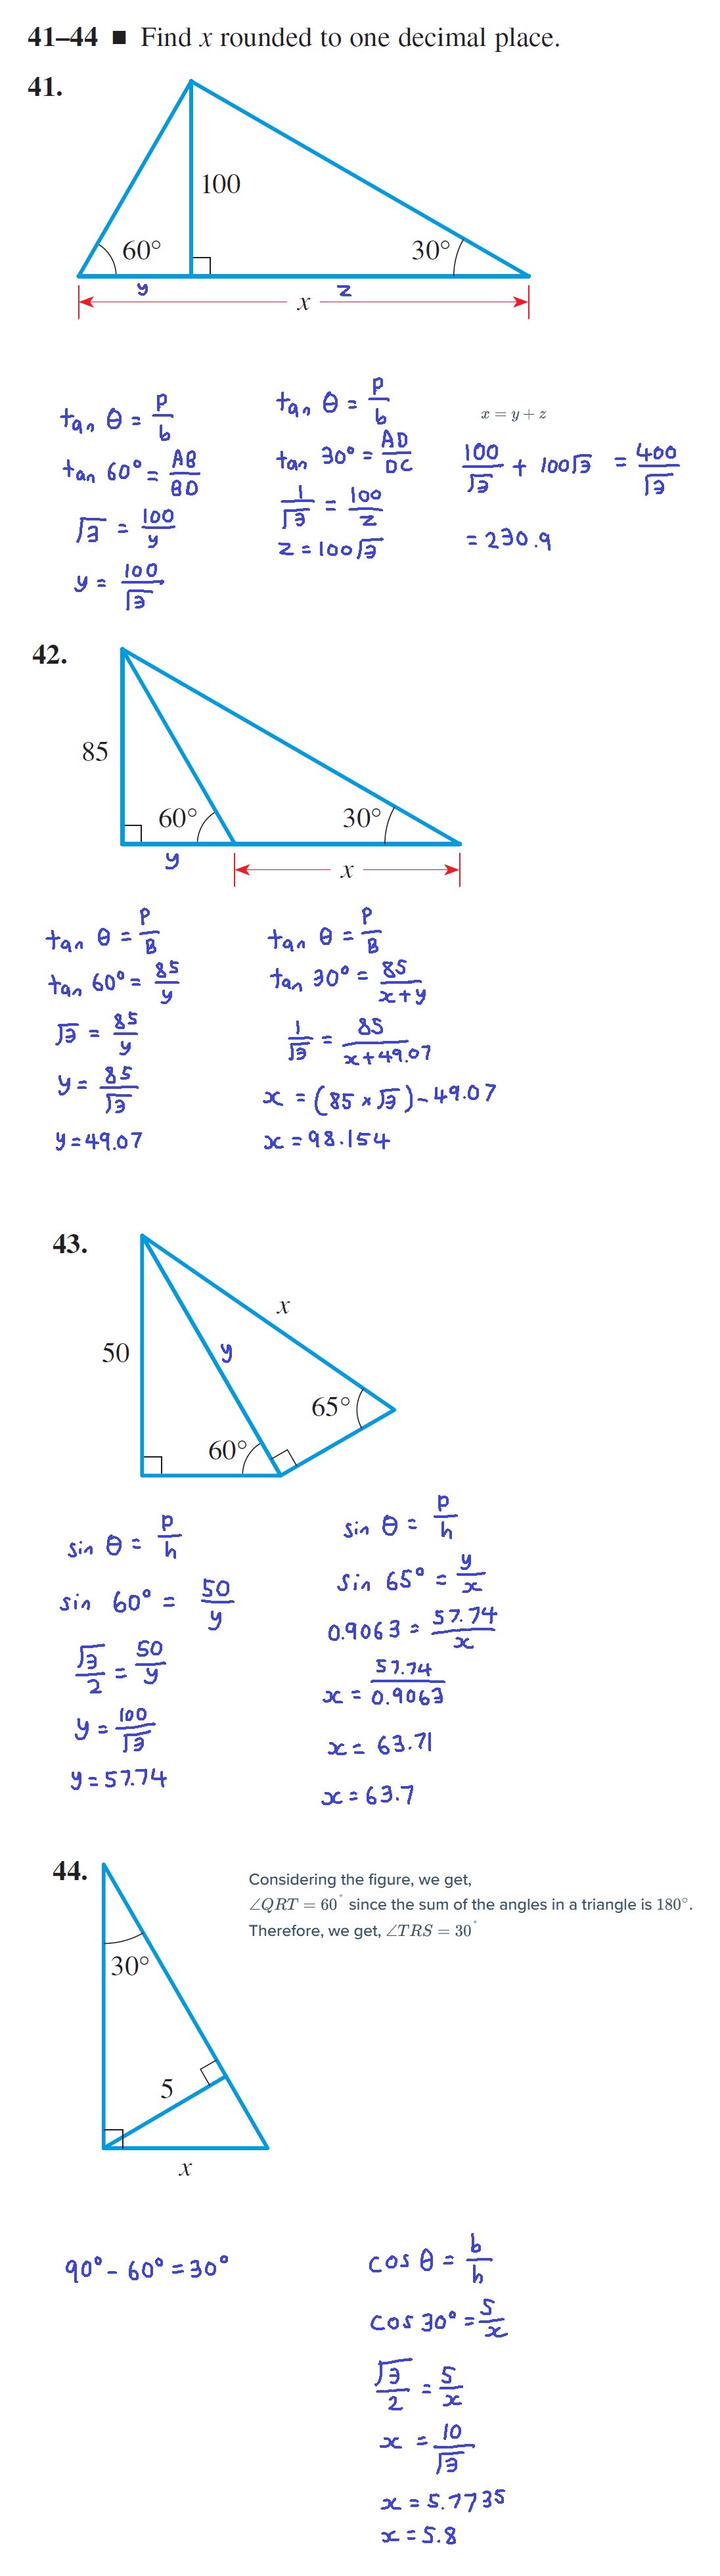 41–44 ■ Find x rounded to one decimal place.
41.
100
60°
30°
y
z
x
tan θ = p/b
tan 60° = AB/BD
√3 = 100/y
y = 100/√3
tan θ = p/b
tan 30° = AD/DC
1/√3 = 100/z
z = 100√3
x = y + z
100/√3 + 100√3 = 400/√3
= 230.9
42.
85
60°
30°
y
x
tan θ = P/B
tan 60° = 85/y
√3 = 85/y
y = 85/√3
y = 49.07
tan θ = P/B
tan 30° = 85/x+y
1/√3 = 85/x+49.07
x = (85 × √3) - 49.07
x = 98.154
43.
x
50
y
65°
60°
sin θ = p/h
sin 60° = 50/y
√3/2 = 50/y
y = 100/√3
y = 57.74
sin θ = p/h
sin 65° = y/x
0.9063 = 57.74/x
x = 57.74/0.9063
x = 63.71
x = 63.7
44.
Considering the figure, we get,
∠QRT = 60° since the sum of the angles in a triangle is 180°.
Therefore, we get, ∠TRS = 30°
30°
5
x
90° - 60° = 30°
cos θ = b/h
cos 30° = 5/x
√3/2 = 5/x
x = 10/√3
x = 5.7735
x = 5.8